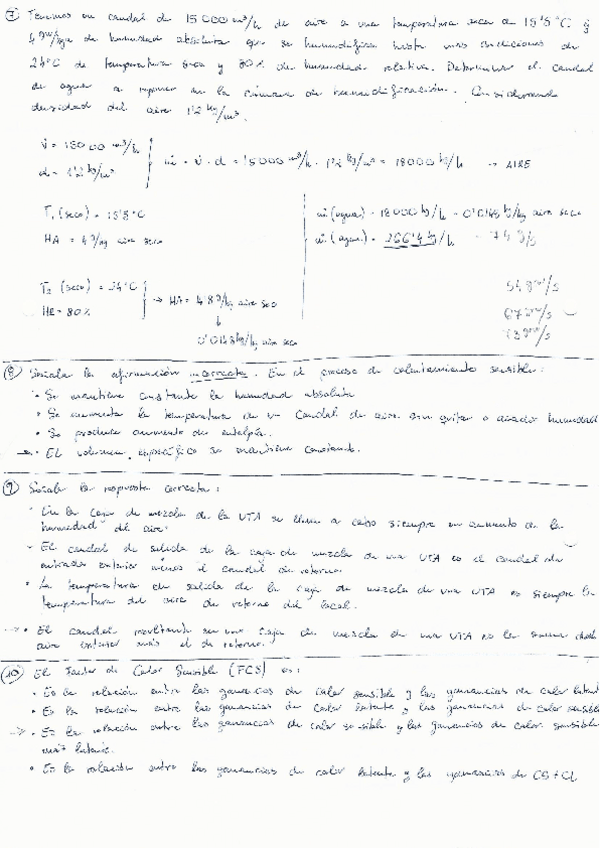 ⑦ Tenemos un caudal de 15000 m³/h de aire a una temperatura seca de 15'5°C y
4 gr/kga de humedad absoluta que se humidifica hasta unas condiciones de
24°C de temperatura seca y 80% de humedad relativa. Determinar el caudal
de agua a reponer en la cámara de humidificación. Considerando
densidad del aire 1'2 kg/m³.
V̇ = 15000 m³/h
d = 1'2 kg/m³
ṁ = V̇ · d = 15000 m³/h · 1'2 kg/m³ = 18000 kg/h → AIRE
T₁ (seco) = 15'5°C
HA = 4 g/kg aire seco
ṁ (agua) = 18000 kg/h · 0'0148 kg/kg aire seco
ṁ (agua) = 266'4 kg/h 74 g/s
T₂ (seco) = 24°C
HR = 80%
→ HA = 14'8 g/kg aire seco
↓
0'0148 kg/kg aire seco
54 gr/s
67 gr/s
73 gr/s
⑧ Señala la afirmación incorrecta. En el proceso de calentamiento sensible:
· Se mantiene constante la humedad absoluta
· Se aumenta la temperatura de un caudal de aire sin quitar o añadir humedad
· Se produce aumento de entalpía.
→ · El volumen específico se mantiene constante.
⑨ Señala la respuesta correcta:
· En la caja de mezcla de la UTA se lleva a cabo siempre un aumento de la
humedad del aire.
· El caudal de salida de la caja de mezcla de una UTA es el caudal de
entrada exterior menos el caudal de retorno.
· La temperatura de salida de la caja de mezcla de una UTA es siempre la
temperatura del aire de retorno del local.
→ · El caudal resultante en una caja de mezcla de una UTA es la suma del
aire exterior más el de retorno.
⑩ El Factor de Calor Sensible (FCS) es:
· Es la relación entre las ganancias de calor sensible y las ganancias de calor latente
· Es la relación entre las ganancias de calor latente y las ganancias de calor sensible
→ · Es la relación entre las ganancias de calor sensible y las ganancias de calor sensible
más latente.
· Es la relación entre las ganancias de calor latente y las ganancias de CS + CL